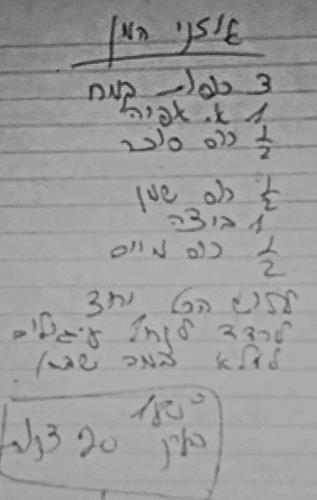 אוזני המן
3 כוסות קמח
1 א. אפיה
1/2 כוס סוכר
1/2 כוס שמן
1 ביצה
1/2 כוס מיים
ללוש הכל יחד
לרדד לקחת עיגולים
למלא
20 דקות